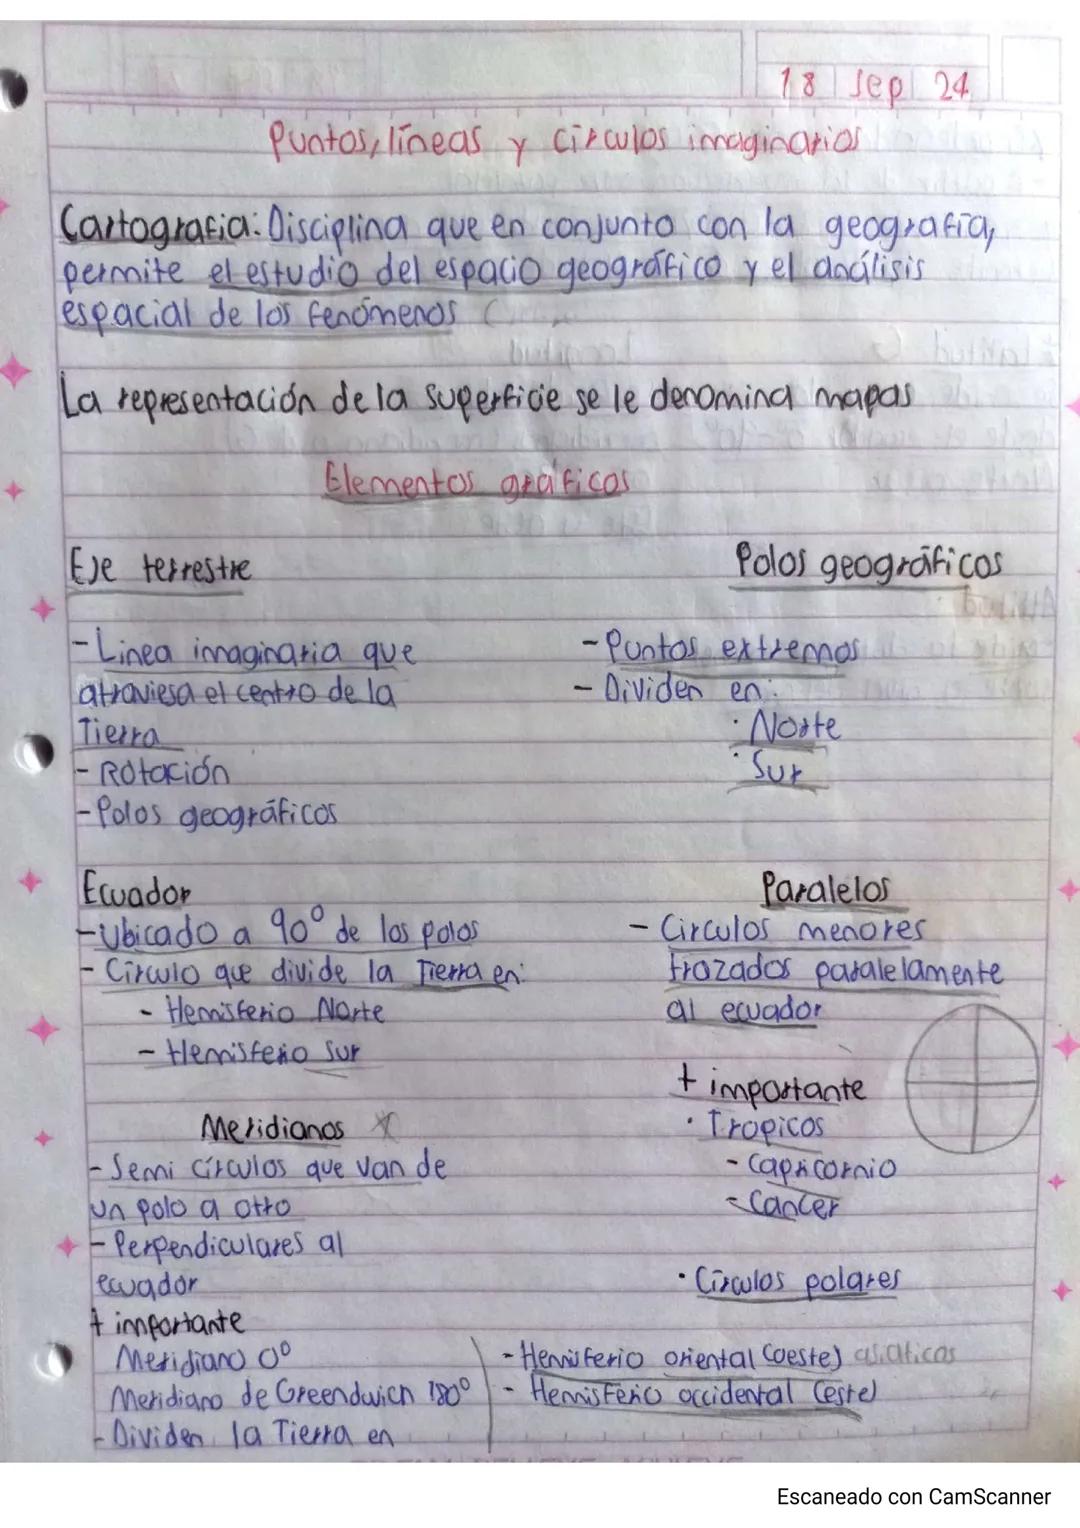 18 Sep 24
Puntos, líneas y círculos imaginarios
Cartografia: Disciplina que en conjunto con la geografía,
permite el estudio del espacio geográfico y el análisis
espacial de los fenómenos
La representación de la superficie se le denomina mapas
Elementos gráficos
Eje terrestre
- Linea imaginaria que
atraviesa el centro de la
Tierra
- Rotación
- Polos geográficos
Polos geográficos
- Puntos extremos
- Dividen en:
· Norte
· Sur
Ecuador
- Ubicado a 90° de los polos
- Círculo que divide la Tierra en:
- Hemisferio Norte
- Hemisferio Sur
Paralelos
- Circulos menores
trazados paralelamente
al ecuador
+ importante
· Tropicos
- Capricornio
- Cancer
· Círculos polares
Meridianos
- Semi círculos que van de
un polo a otro
- Perpendiculares al
ecuador
+ importante
Meridiano 0°
Meridiano de Greendwich 180°
- Dividen la Tierra en
- Hemisferio oriental (oeste) asiaticas
- Hemisferio occidental (este)
Escaneado con CamScanner